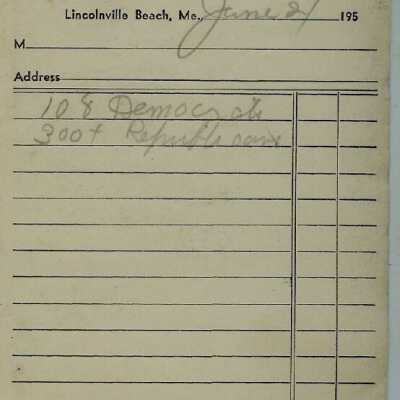 Lincolnville Beach, Me., June 21 195
M
Address
108 Democrats
300+ Republicans